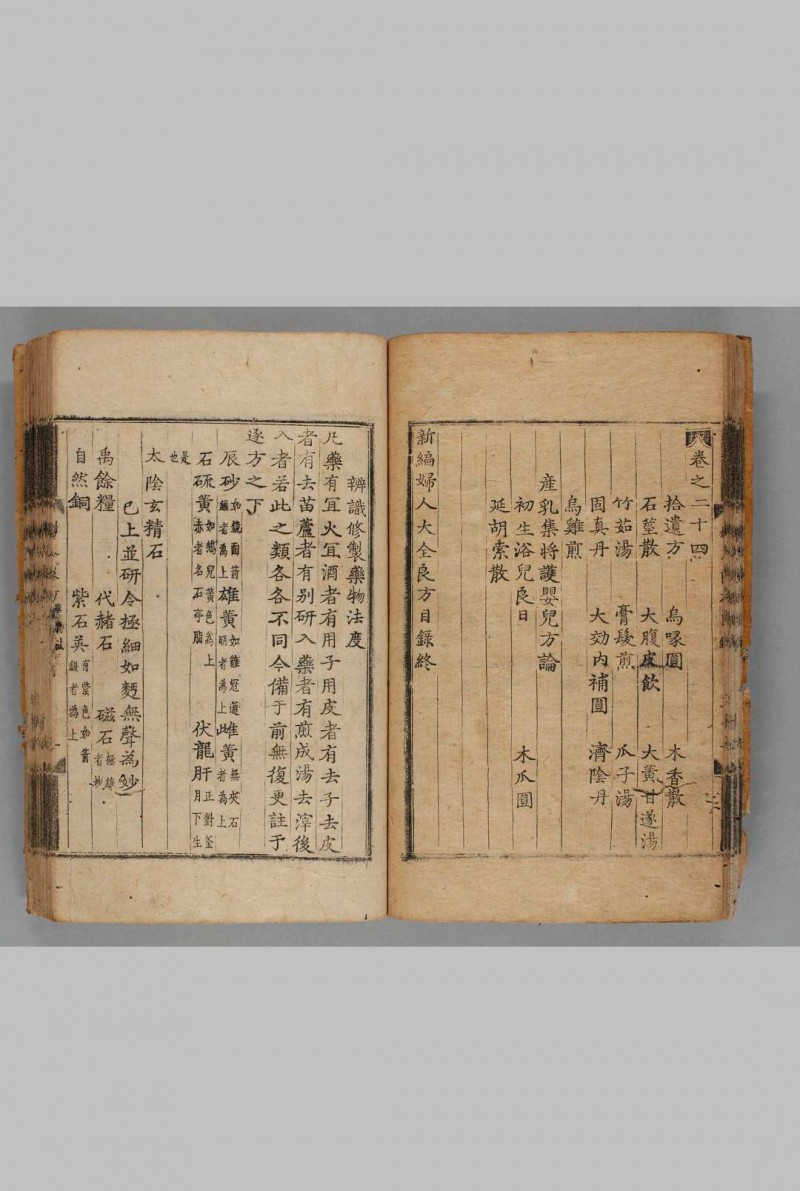 卷之二十四
拾遺方 烏喙圓 木香散
石莖散 大腹皮飲 大黃甘遂湯
竹茹湯 膏髮煎 瓜子湯
固真丹 大効内補圓 濟陰丹
烏雞煎
産乳集將護嬰兒方論
初生浴兒良日 木瓜圓
延胡索散
新編婦人大全良方目錄終
辨識修製藥物法度
凡藥有宜火宜酒者有用子用皮者有去子去皮
者有去苗蘆者有別研入藥者有煎成湯去滓後
入者若此之類各各不同今備于前無復更註于
逐方之下
辰砂如箭鏃者為上 雄黃如雞冠通明者為上 雌黃無夾石者為上
石硫黃如鵝兒黃色為上赤者名石亭脂 伏龍肝正對釜月下生
是也
太陰玄精石
已上並研令極細如麪無聲為妙
禹餘糧 代赭石 磁石
自然銅 紫石英有紫色如箭鏃者為上